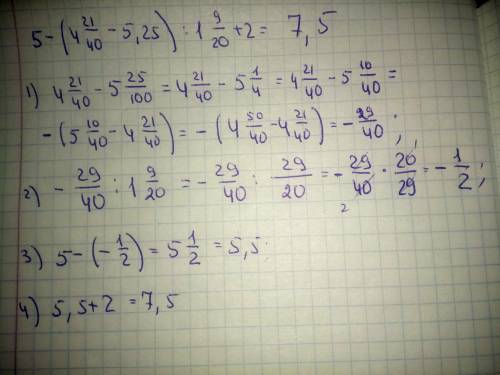 5-(4 21/40 - 5,25) : 1 9/20 + 2 = 7,5
1) 4 21/40 - 5 25/100 = 4 21/40 - 5 1/4 = 4 21/40 - 5 10/40 =
-(5 10/40 - 4 21/40) = -(4 50/40 - 4 21/40) = - 29/40 ;
2) - 29/40 : 1 9/20 = - 29/40 : 29/20 = - 29/40 · 20/29 = - 1/2 ;
2
3) 5-(- 1/2) = 5 1/2 = 5,5;
4) 5,5+2 = 7,5